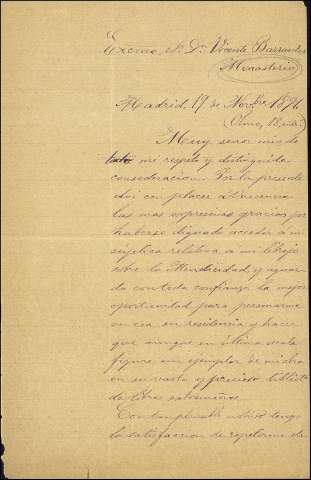 Excmo. Sr. Dn. Vicente Barrantes
Monasterio
Madrid, 19 de Novbre 1891
(Olmo, 18,
Muy señor mio de
todo mi respeto y distinguida
consideracion: Por la presente
doi con placer á V. E.
las mas expresivas gracias por
haberse dignado acceder á mi
súplica relativa á mi librejo
sobre la Mendicidad, y aguar-
do con toda confianza la mejor
oportunidad para personarme
en esa su residencia y hacer
que aunque en última escala
figure un ejemplar de
en su vasta y preciosa bibliote-
ca de libros extremeños.
Con tan plausible motivo tengo
la satisfaccion de repetirme de